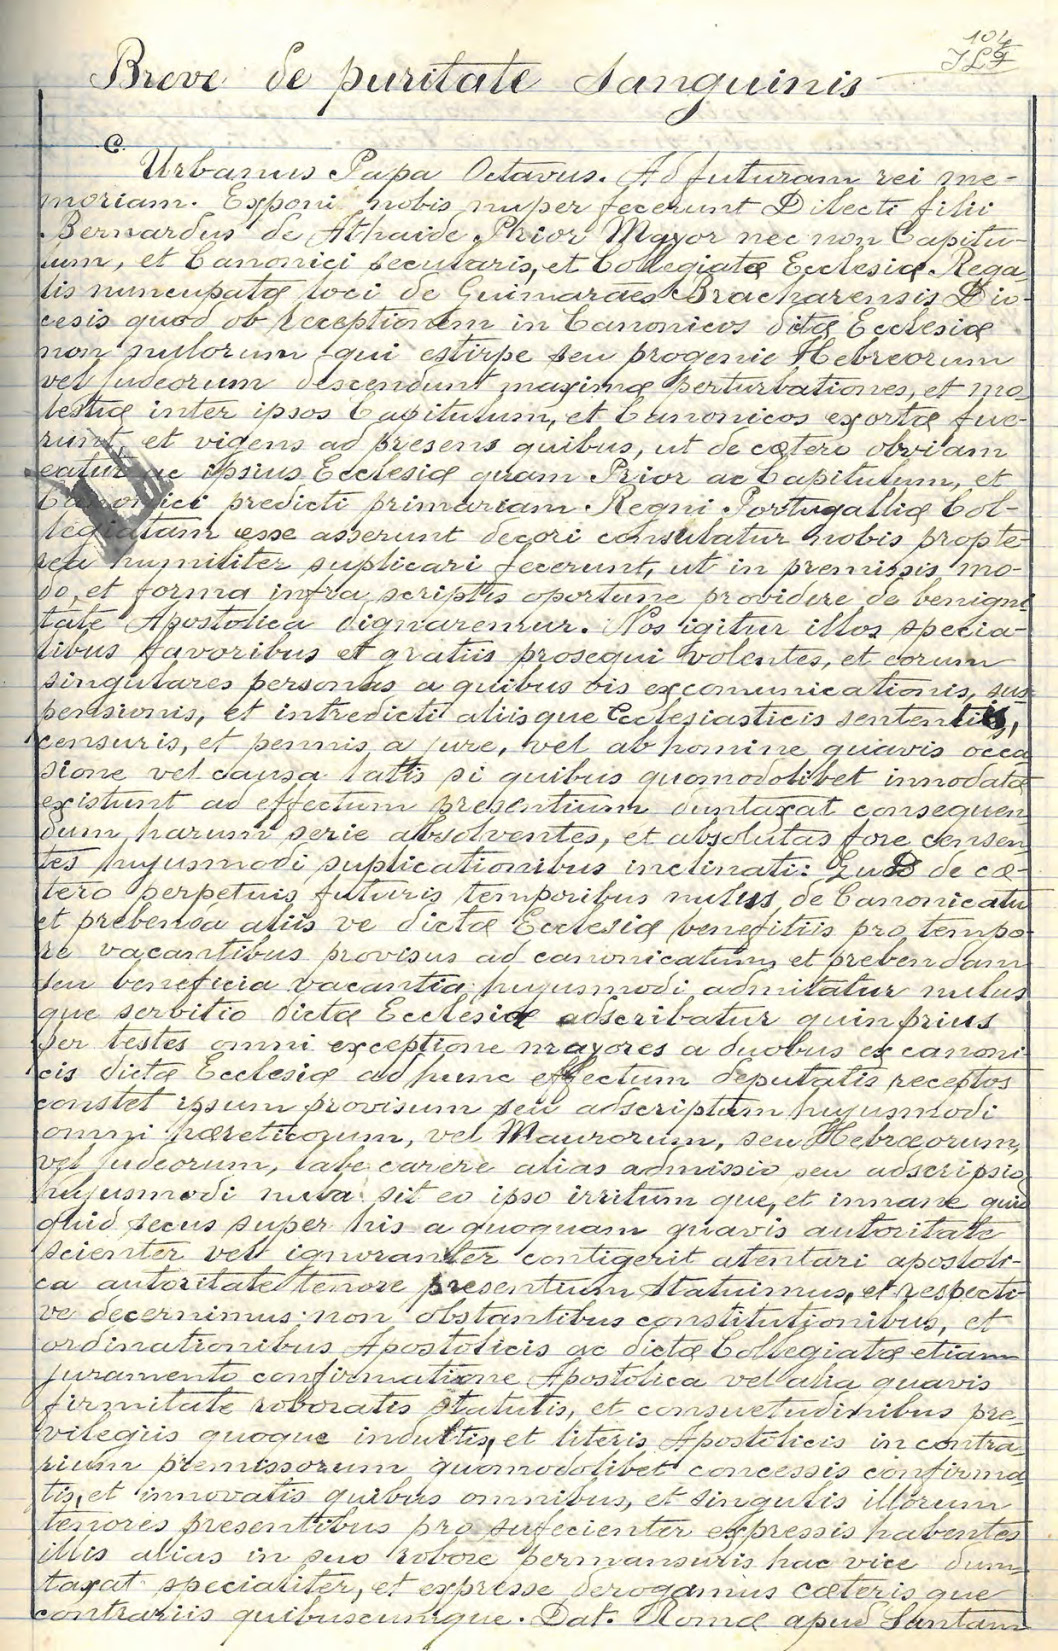 104
Breve de puritate Sanguinis
C.
Urbanus Papa Octavus. Ad futuram rei me-
moriam. Exponi nobis nuper fecerunt Dilecti filii
Bernardus de Athaide Prior Mayor nec non Capitu-
lum, et Canonici secularis, et Collegiatæ Ecclesiæ Rega
lis nuncupatæ loci de Guimarães Bracharensis Dio-
cesis quod ob receptionem in Canonicos ditæ Ecclesiæ
non nulorum qui estirpe seu progenie Hebreorum
vel judeorum descendunt maximæ perturbationes, et mo
lestiæ inter ipsos Capitulum, et Canonicos exortæ fue-
runt et vigens ad presens quibus, ut de cætero obviam
eatur ac ipsius Ecclesiæ quam Prior ac Capitulum, et
Canonici predicti primariam Regni Portugalliæ Col-
legiatam esse asserunt decori consulatur nobis propte-
rea humiliter suplicari fecerunt, ut in premissis mo-
do, et forma infra scriptis oportune providere de benigni
tate Apostolica dignaremur. Nos igitur illos specia-
libus favoribus et gratiis prosequi volentes, et eorum
singulares personas a quibus vis excomunicationis, sus
pensionis, et intredicti aliisque Ecclesiasticis sententiis,
censuris, et pennis a jure, vel ab homine quavis occa
sione vel causa latis si quibus quomodolibet innodatæ
existunt ad effectum presentium duntaxat consequen
dum harum serie absolventes, et absolutas fore censen
tes hujusmodi suplicationibus inclinati: Quod de cæ-
tero perpetuis futuris temporibus nulus de Canonicatu
et prebenda aliis ve dictæ Ecclesiæ benefitiis pro tempo
re vacantibus provisus ad canonicatum, et prebendam
seu beneficia vacantia hujusmodi admitatur nulus
que servitio dictæ Ecclesiæ adscribatur quin prius
per testes omni exceptione mayores a duobus ex canoni
cis dictæ Ecclesiæ ad hunc effectum deputatis receptos
constet ipsum provisum seu adscriptum hujusmodi
omni hæreticorum, vel Maurorum, seu Hebræorum,
vel judeorum, labe carere alias admissio seu adscripsio
hujusmodi nula sit eo ipso irritum que, et innane quid
quid secus super his a quoquam quavis autoritate
scienter vel ignoranter contigerit atentari apostoli-
ca autoritate tenore presentium statuimus, et respecti
ve decernimus non obstantibus constitutionibus, et
ordinationibus Apostolicis ac dictæ Collegiatæ etiam
juramento confirmatione Apostolica vel alia quavis
firmitate roboratis statutis, et consuetudinibus pre-
vilegiis quoque indultis, et literis Apostolicis in contra
rium premissorum quomodolibet concessis confirma
tis, et innovatis quibus omnibus, et singulis illorum
tenores presentibus pro sufecienter expressis habentes
illis alias in suo robore permansuris hac vice dum
taxat specialiter, et expresse derogamus cæteris que
contrariis quibuscumque. Dat. Romæ apud Santam